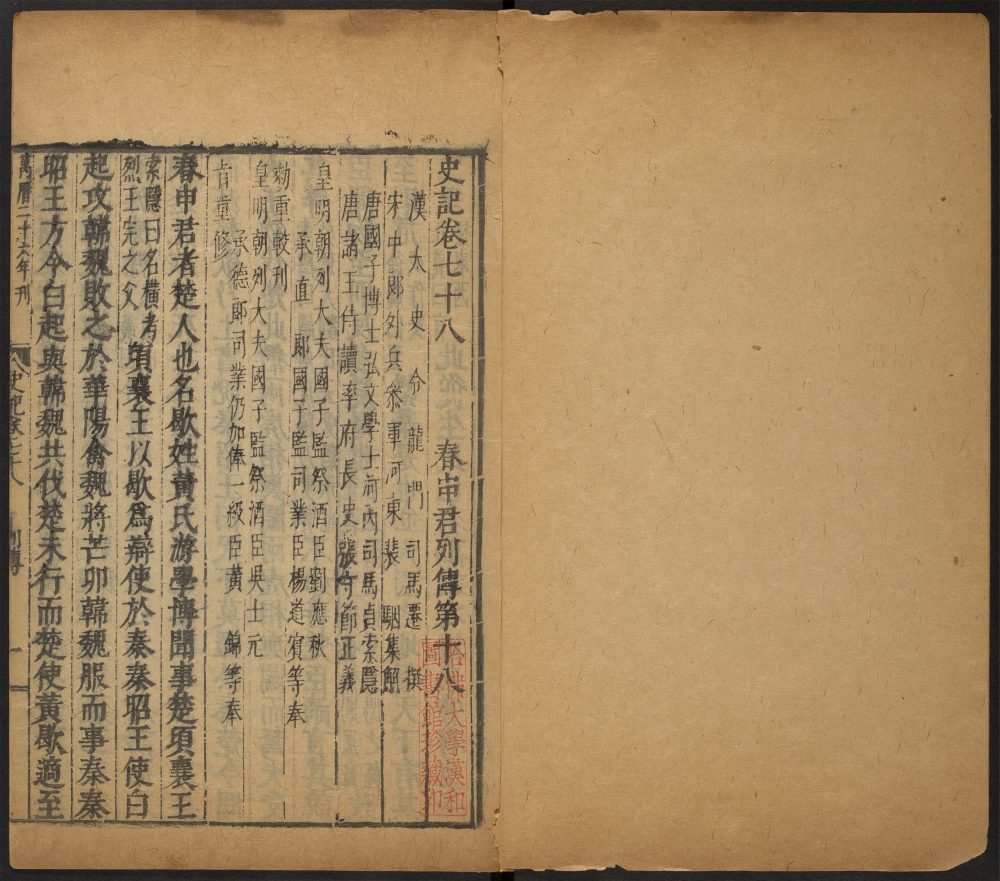 史記卷七十八　春申君列傳第十八
漢太史令龍門司馬遷撰
宋中郎外兵參軍河東裴駰集解
唐國子博士弘文學士河內司馬貞索隱
唐諸王侍讀率府長史張守節正義
皇明朝列大夫國子監祭酒臣劉應秋
承直郎國子監司業臣楊道賓等奉
勅重較刊
皇明朝列大夫國子監祭酒臣吳士元
承德郎司業仍加俸一級臣黃錦等奉
旨重修
春申君者楚人也名歇姓黃氏游學博聞事楚頃襄王
索隱曰名橫考
烈王完之父
頃襄王以歇爲辯使於秦秦昭王使白
起攻韓魏敗之於華陽禽魏將芒卯韓魏服而事秦秦
昭王方令白起與韓魏共伐楚未行而楚使黃歇適至
萬曆二十六年刊
史記卷七十八
列傳
一
哈佛大學漢和
圖書館珍藏印